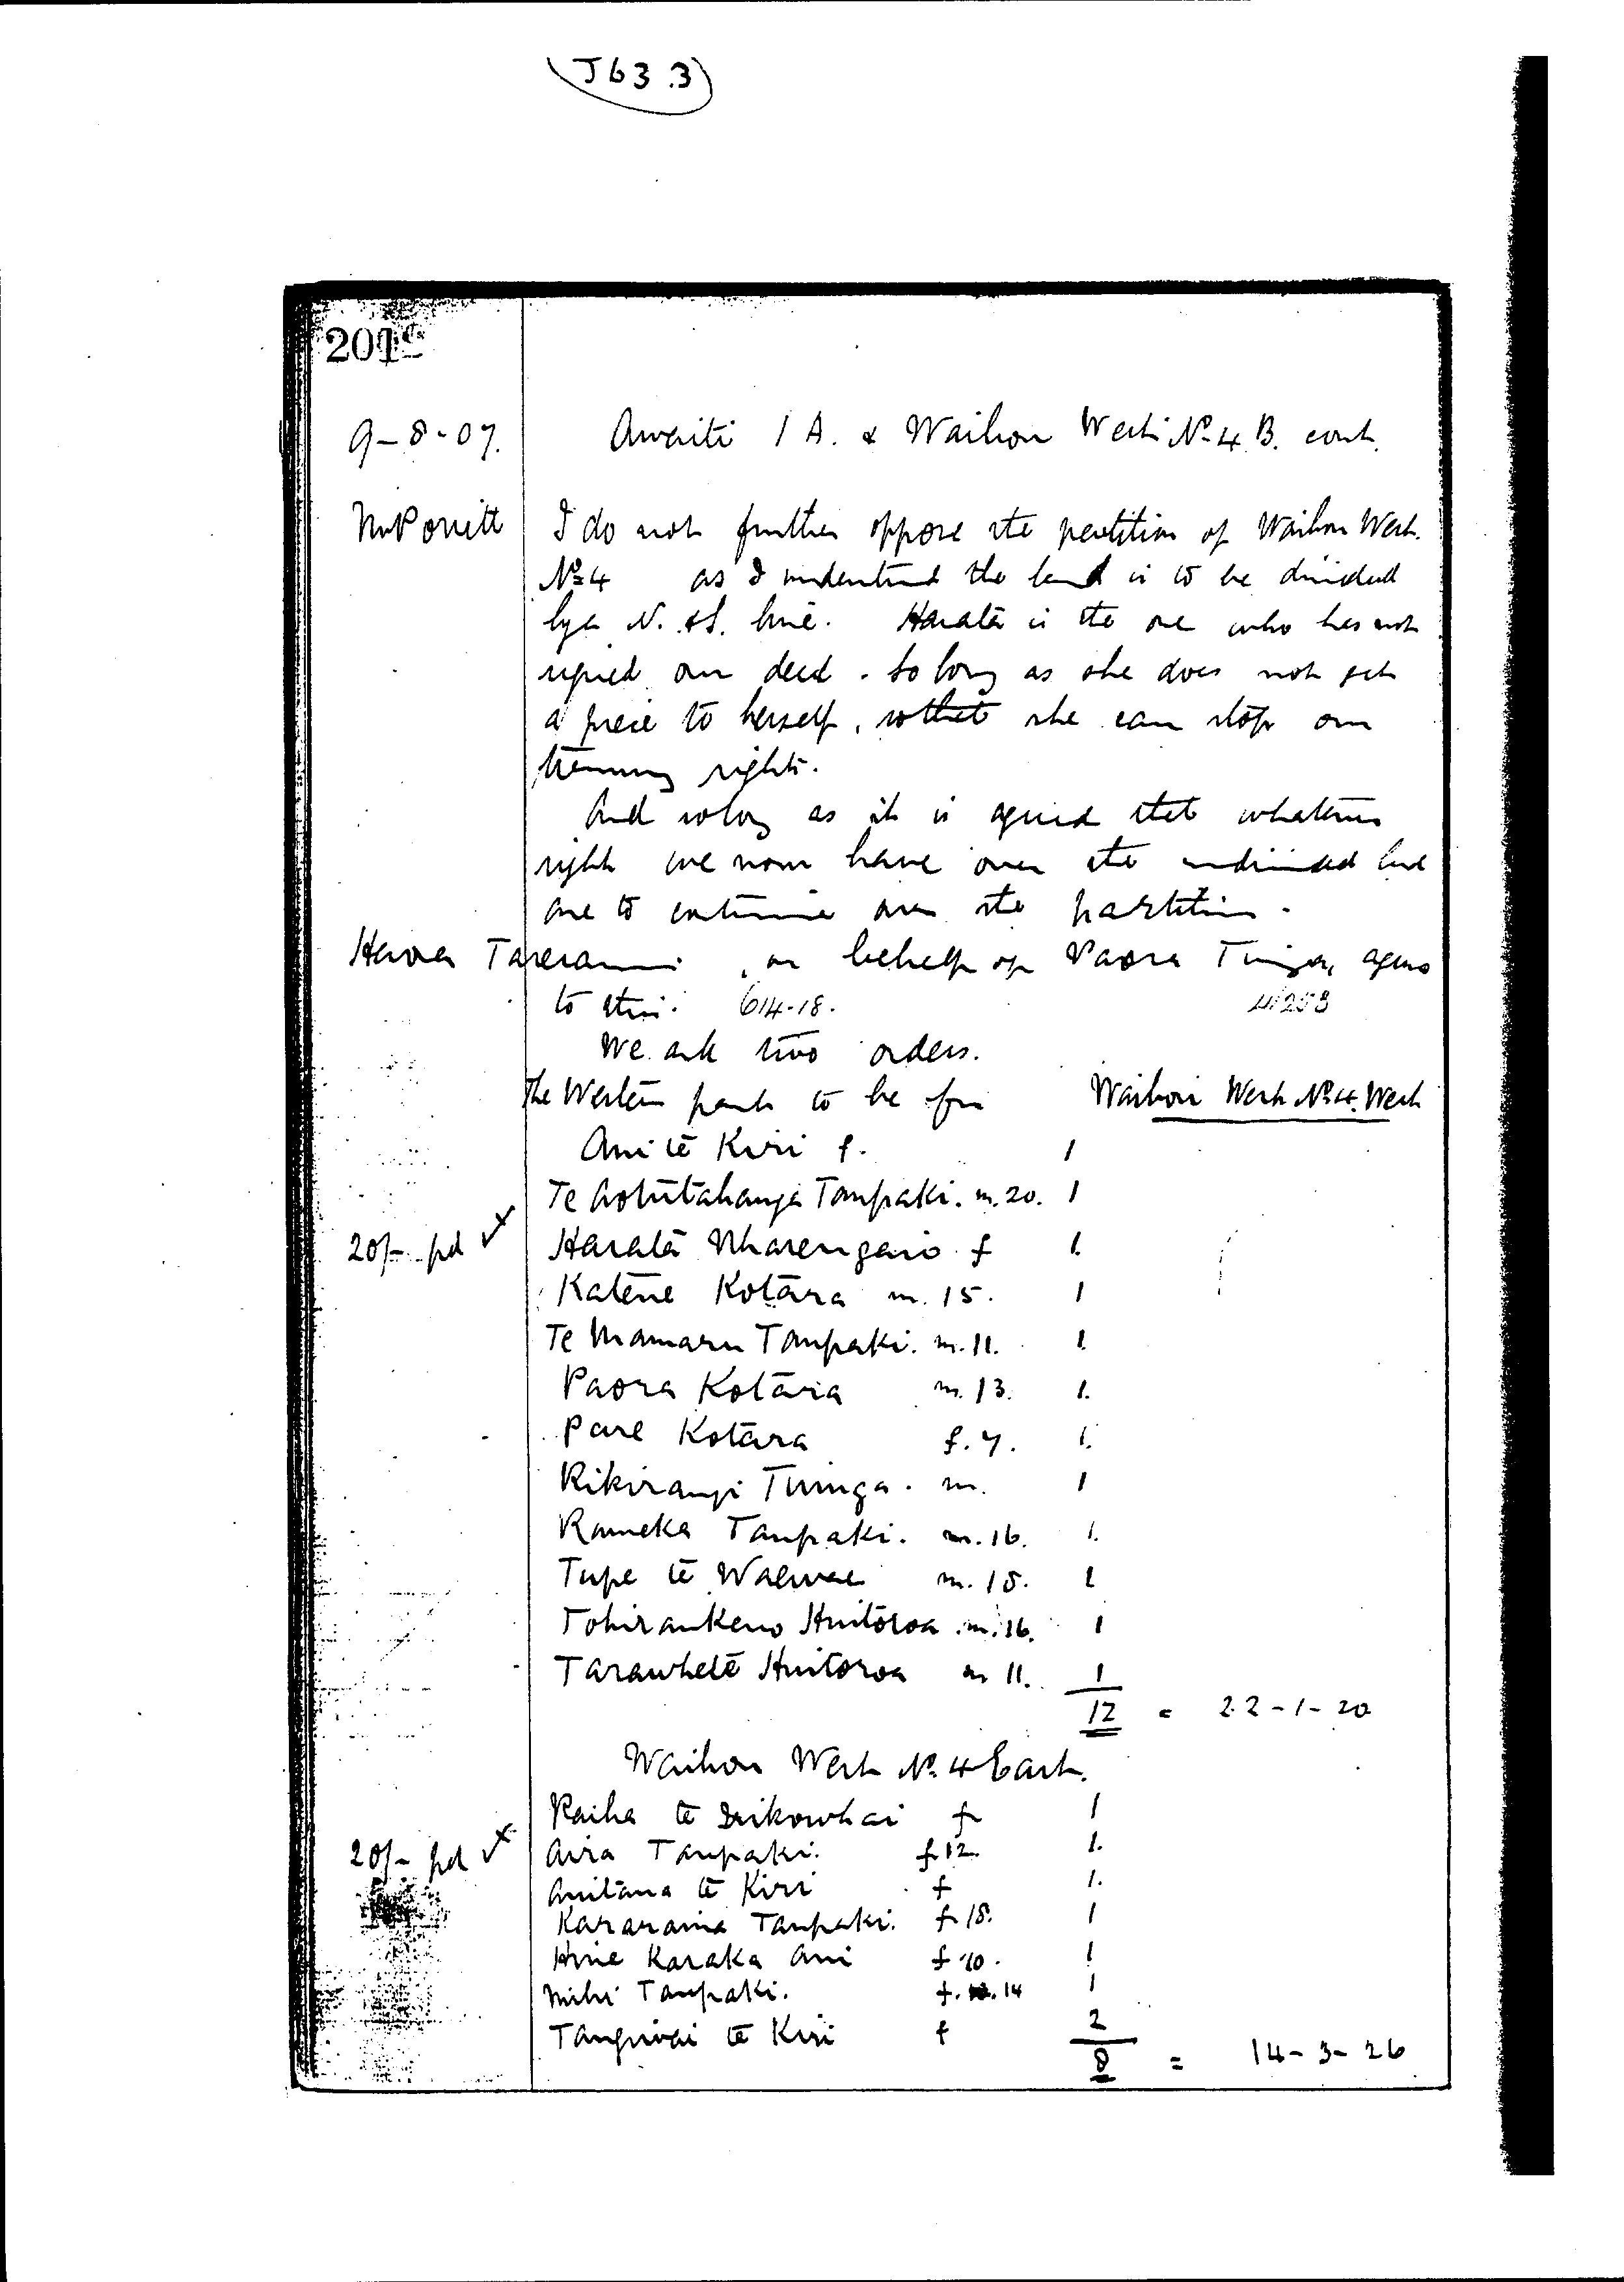 J63.3
201
9-8-07. Awaiti 1A. & Waihou West No 4 B. cont.
Mr Porritt I do not further oppose the partition of Waihou West
No 4 as I understand the land is to be divided
by a N. & S. line. Harata is the one who has not
signed our deed. So long as she does not get
a piece to herself, so that she can stop our
rights.
And so long as it is agreed that whatever
right we now have over the undivided land
are to continue over the partition.
Haora Tareranui, on behalf of Paora Tiunga, agrees
to this. 614-18. 258
We ask two orders.
The Western part to be for Waihou West No 4. West
Ani te Kiri f. 1
Te Aohutahanga Taupaki. m. 20. 1
20/- pd Harata Wharengaio f 1.
Katene Kotara m. 15. 1
Te Mamaru Taupaki. m. 11. 1.
Paora Kotara m. 13. 1.
Pare Kotara f. 7. 1.
Rikirangi Tiunga. m. 1
Rameka Taupaki. m. 16. 1.
Tupe te Waewae m. 18. 1
Huitoroa. m. 16. 1
Tarawhete Huitoroa m 11. 1
12 = 22-1-20
Waihou West No. 4 East.
Raiha te f 1
20/- pd Aira Taupaki. f 12. 1.
Anitana te Kiri f 1.
Kararaina Taupaki. f 18. 1
Hine Karaka Ani f 10. 1
Mihi Taupaki. f. 14 1
Tangiwai te Kiri f 2
8 = 14-3-26